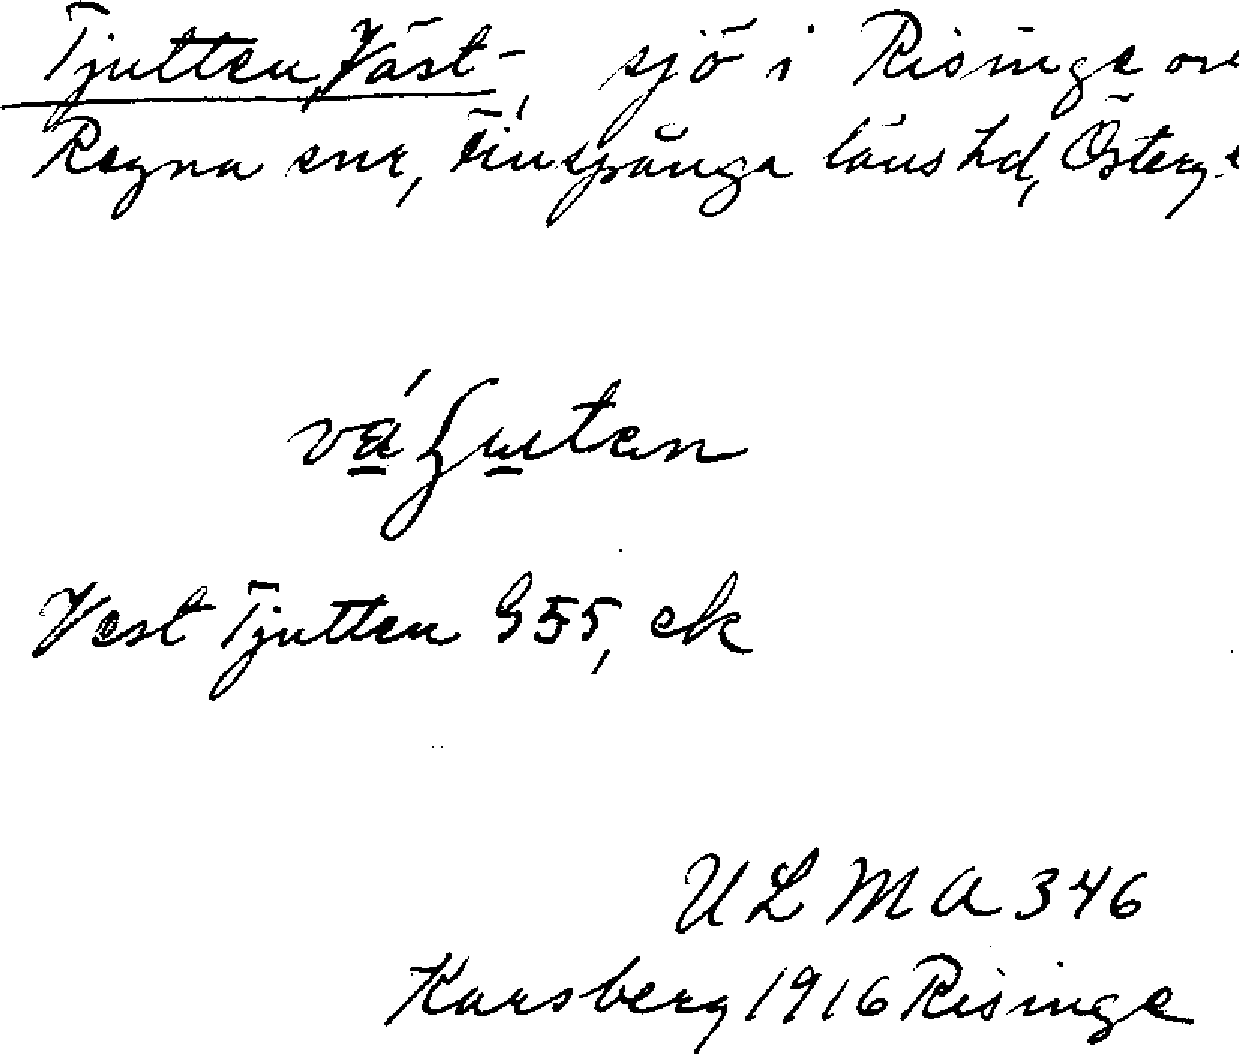 Tjutten, Väst-, sjö i Risinge o
Regna snr, Finspånga läns hd, Österg
Väst Tjutten G 55, ek
ULMA 346
Karsberg 1916 Risinge